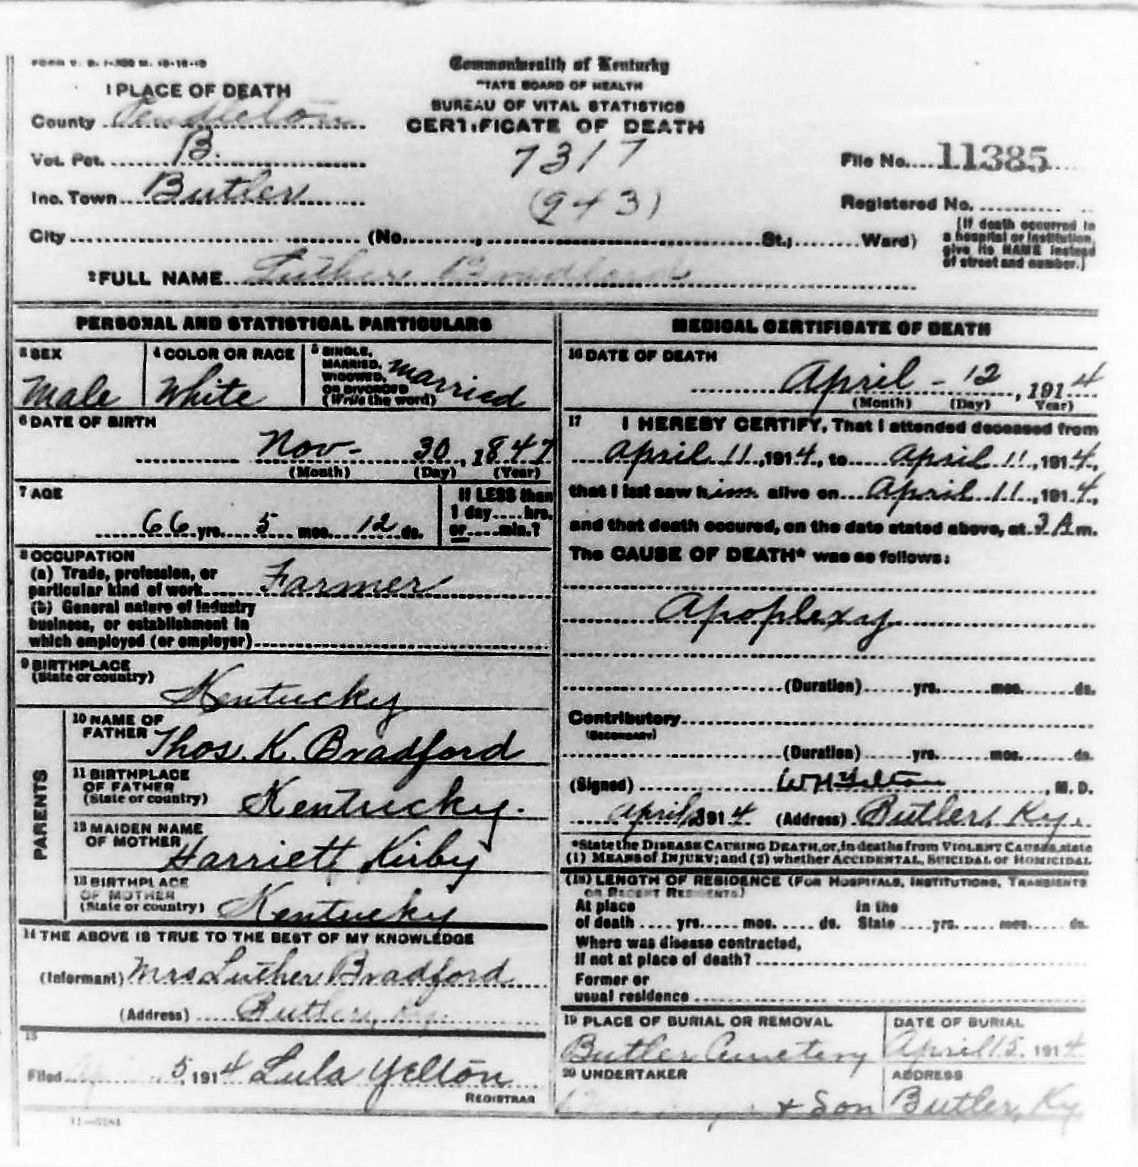 Commonwealth of Kentucky
TATE BOARD OF HEALTH
BUREAU OF VITAL STATISTICS
CERTIFICATE OF DEATH
1 PLACE OF DEATH
County Pendleton
Vot. Pct. B.
Inc. Town Butler
7317
(943)
File No. 11385
Registered No.
City (No. , St.; Ward)
(If death occurred in
a hospital or institution,
give its NAME instead
of street and number.)
2 FULL NAME Luther Bradford
PERSONAL AND STATISTICAL PARTICULARS
3 SEX
Male
4 COLOR OR RACE
White
5 SINGLE,
MARRIED,
WIDOWED,
OR DIVORCED
(Write the word)
Married
6 DATE OF BIRTH
Nov- 30, 1847
(Month) (Day) (Year)
7 AGE
66 yrs. 5 mos. 12 ds.
If LESS than
1 day.....hrs.
or.....min.?
8 OCCUPATION
(a) Trade, profession, or
particular kind of work Farmer
(b) General nature of industry
business, or establishment in
which employed (or employer)
9 BIRTHPLACE
(State or country)
Kentucky
PARENTS
10 NAME OF
FATHER Thos. K. Bradford
11 BIRTHPLACE
OF FATHER
(State or country) Kentucky.
12 MAIDEN NAME
OF MOTHER Harriett Kirby
13 BIRTHPLACE
OF MOTHER
(State or country) Kentucky
14 THE ABOVE IS TRUE TO THE BEST OF MY KNOWLEDGE
(Informant) Mrs Luther Bradford
(Address) Butler, Ky.
15
Filed 5, 1914 Lula Yelton
REGISTRAR
MEDICAL CERTIFICATE OF DEATH
16 DATE OF DEATH
April - 12, 1914
(Month) (Day) Year)
17 I HEREBY CERTIFY, That I attended deceased from
April 11, 1914, to April 11, 1914,
that I last saw him alive on April 11, 1914,
and that death occured, on the date stated above, at 3 A m.
The CAUSE OF DEATH* was as follows:
Apoplexy
(Duration) yrs. mos. ds.
Contributory
(SECONDARY)
(Duration) yrs. mos. ds.
(Signed) W H Yelton, M.D.
April 1914 (Address) Butler, Ky.
*State the DISEASE CAUSING DEATH, or, in deaths from VIOLENT CAUSES, state
(1) MEANS OF INJURY; and (2) whether ACCIDENTAL, SUICIDAL or HOMICIDAL
(18) LENGTH OF RESIDENCE (FOR HOSPITALS, INSTITUTIONS, TRANSIENTS
OR RECENT RESIDENTS)
At place In the
of death .... yrs. mos. ds. State yrs. mos. ds.
Where was disease contracted,
if not at place of death?
Former or
usual residence
19 PLACE OF BURIAL OR REMOVAL
Butler Cemetery
DATE OF BURIAL
April 15, 1914
20 UNDERTAKER
& Son
ADDRESS
Butler, Ky